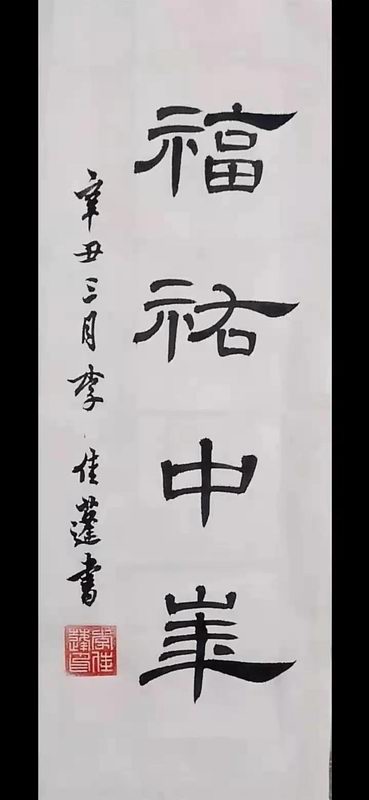 福祐中華
辛丑三月李佳蓬書
李佳蓬印